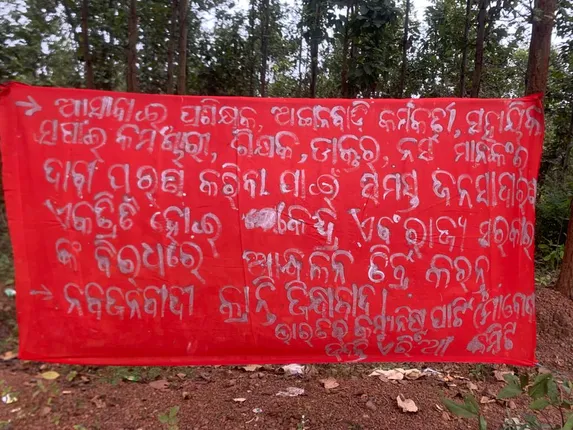 → ଆସାବାଇ ପରିକ୍ଷକ, ଅଙ୍ଗନବାଡ଼ି କର୍ମକର୍ତ୍ତୀ, ସହାୟିକା
ସଫାଇ କର୍ମଚାରୀ, ଶିକ୍ଷକ, ଡାକ୍ତର, ନର୍ସ ମାନଙ୍କର
ଦାବୀ ପୂରଣ କରିବା ପାଇଁ ସମସ୍ତ ଜନସାଧାରଣ
ଏକଜୁଟ ହୋଇ କେନ୍ଦ୍ର ଏବଂ ରାଜ୍ୟ ସରକାର
ଙ୍କ ବିରୋଧରେ ଆନ୍ଦୋଳନ ତିବ୍ର କରନ୍ତୁ
→ ନବଜନବାଦୀ କ୍ରାନ୍ତି ଜିନ୍ଦାବାଦ।
ଭାରତର କମ୍ୟୁନିଷ୍ଟ ପାର୍ଟି (ମାଓବାଦୀ
ଏରିଆ କମିଟି